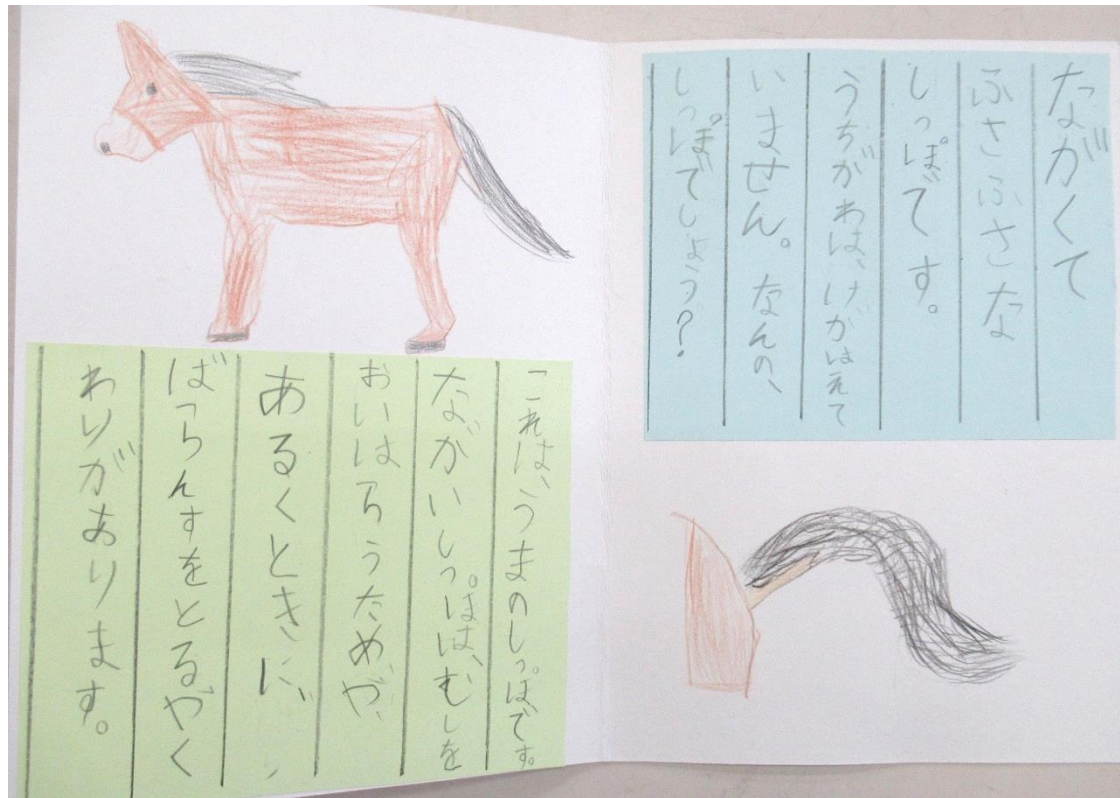 ながくて
ふさふさな
しっぽです。
うちがわは、けがはえて
いません。なんの、
しっぽでしょう?
これは、うまのしっぽです。
ながいしっぽは、むしを
おいはらうためや、
あるくときに、
ばらんすをとるやく
わりがあります。